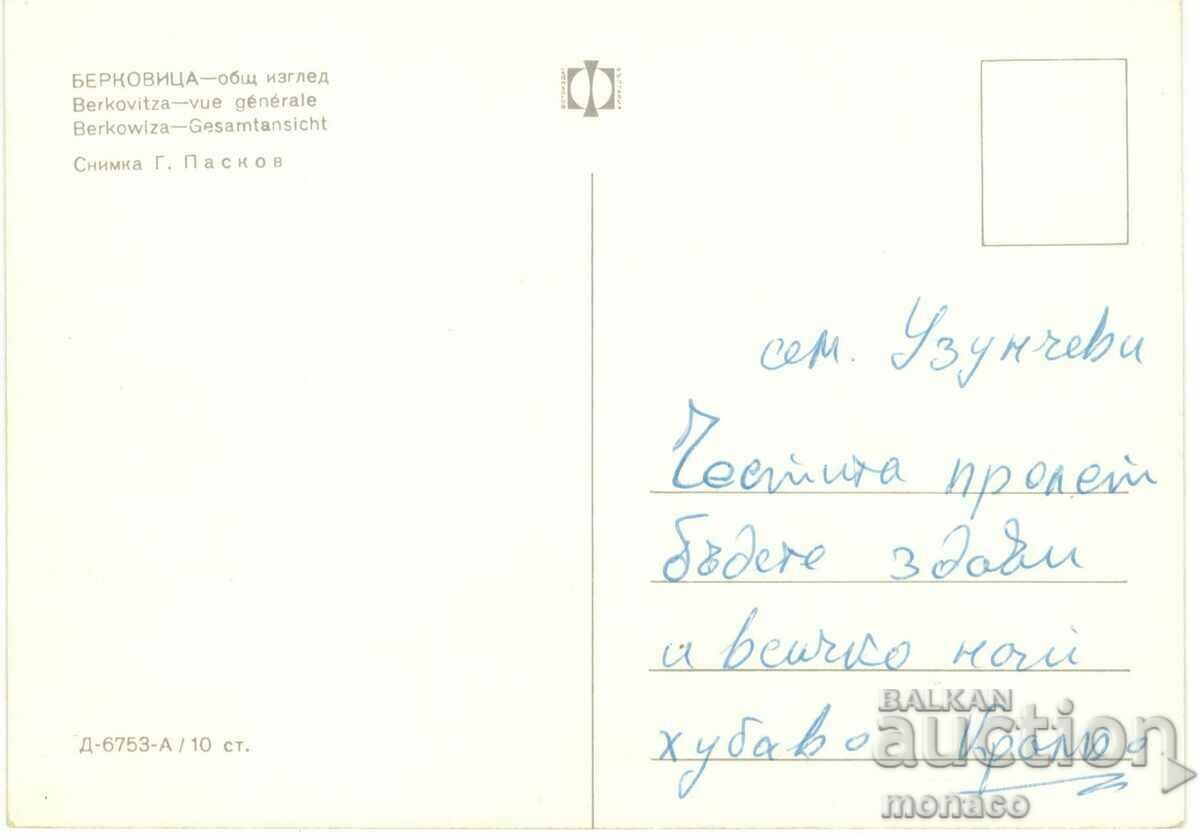 БЕРКОВИЦА—общ изглед
Berkovitza—vue générale
Berkowiza—Gesamtansicht
Снимка Г. Пасков
сем. Узунчеви
Честита пролет
бъдете здави
и всичко най
хубаво
Д-6753-А / 10 ст.
BALKAN
auction
monaco